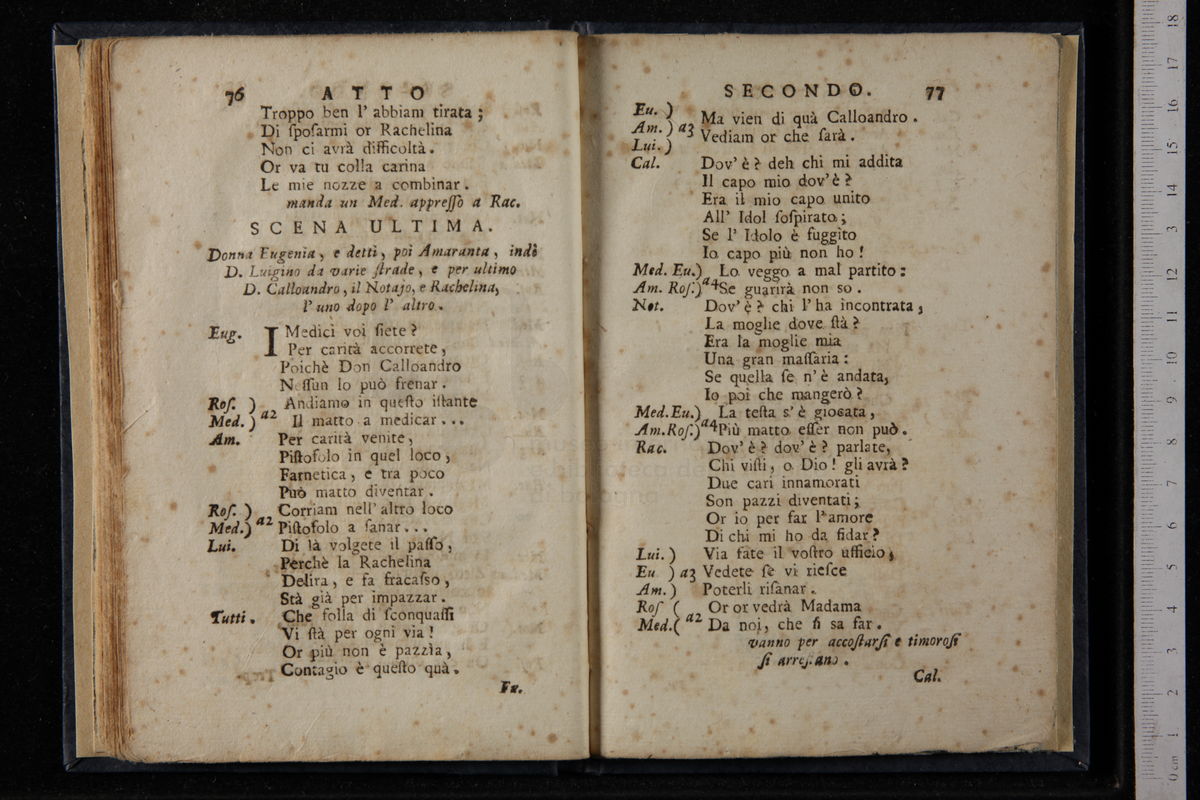 76 ATTO
Troppo ben l' abbiam tirata ;
Di ſpoſarmi or Rachelina
Non ci avrà difficoltà.
Or va tu colla carina
Le mie nozze a combinar.
manda un Med. appreſſo a Rac.
SCENA ULTIMA.
Donna Eugenia, e detti, poi Amaranta, indi
D. Luigino da varie ſtrade, e per ultimo
D. Calloandro, il Notajo, e Rachelina,
l' uno dopo l' altro.
Eug. I Medici voi ſiete?
Per carità accorrete,
Poichè Don Calloandro
Neſſun lo può frenar.
Roſ. ) Andiamo in queſto iſtante
Med. ) a2 Il matto a medicar...
Am. Per carità venite,
Piſtofolo in quel loco,
Farnetica, e tra poco
Può matto diventar.
Roſ. ) Corriam nell' altro loco
Med.) a2 Piſtofolo a ſanar...
Lui. Di là volgete il paſſo,
Perchè la Rachelina
Delira, e fa fracaſso,
Stà già per impazzar.
Tutti. Che folla di ſconquaſſi
Vi ſtà per ogni via!
Or più non è pazzìa,
Contagio è queſto quà.
SECONDO. 77
Eu. )
Am. ) a3 Ma vien di quà Calloandro.
Lui. ) Vediam or che ſarà.
Cal. Dov' è? deh chi mi addita
Il capo mio dov' è?
Era il mio capo unito
All' Idol ſoſpirato;
Se l' Idolo è fuggito
Io capo più non ho!
Med. Eu.) Lo veggo a mal partito:
Am. Roſ.) a4 Se guarirà non so.
Not. Dov' è? chi l' ha incontrata,
La moglie dove ſtà?
Era la moglie mia
Una gran maſſaria:
Se quella ſe n' è andata,
Io poi che mangerò?
Med. Eu.) La teſta s' è giocata,
Am. Roſ.) a4 Più matto eſſer non può.
Rac. Dov' è? dov' è? parlate,
Chi viſti, o Dio! gli avrà?
Due cari innamorati
Son pazzi diventati;
Or io per far l' amore
Di chi mi ho da fidar?
Lui. ) Via fate il voſtro ufficio,
Eu ) a3 Vedete ſe vi rieſce
Am. ) Poterli riſanar.
Roſ ( Or or vedrà Madama
Med.( a2 Da noi, che ſi sa far.
vanno per accoſtarſi e timoroſi
ſi arreſtano.
Cal.